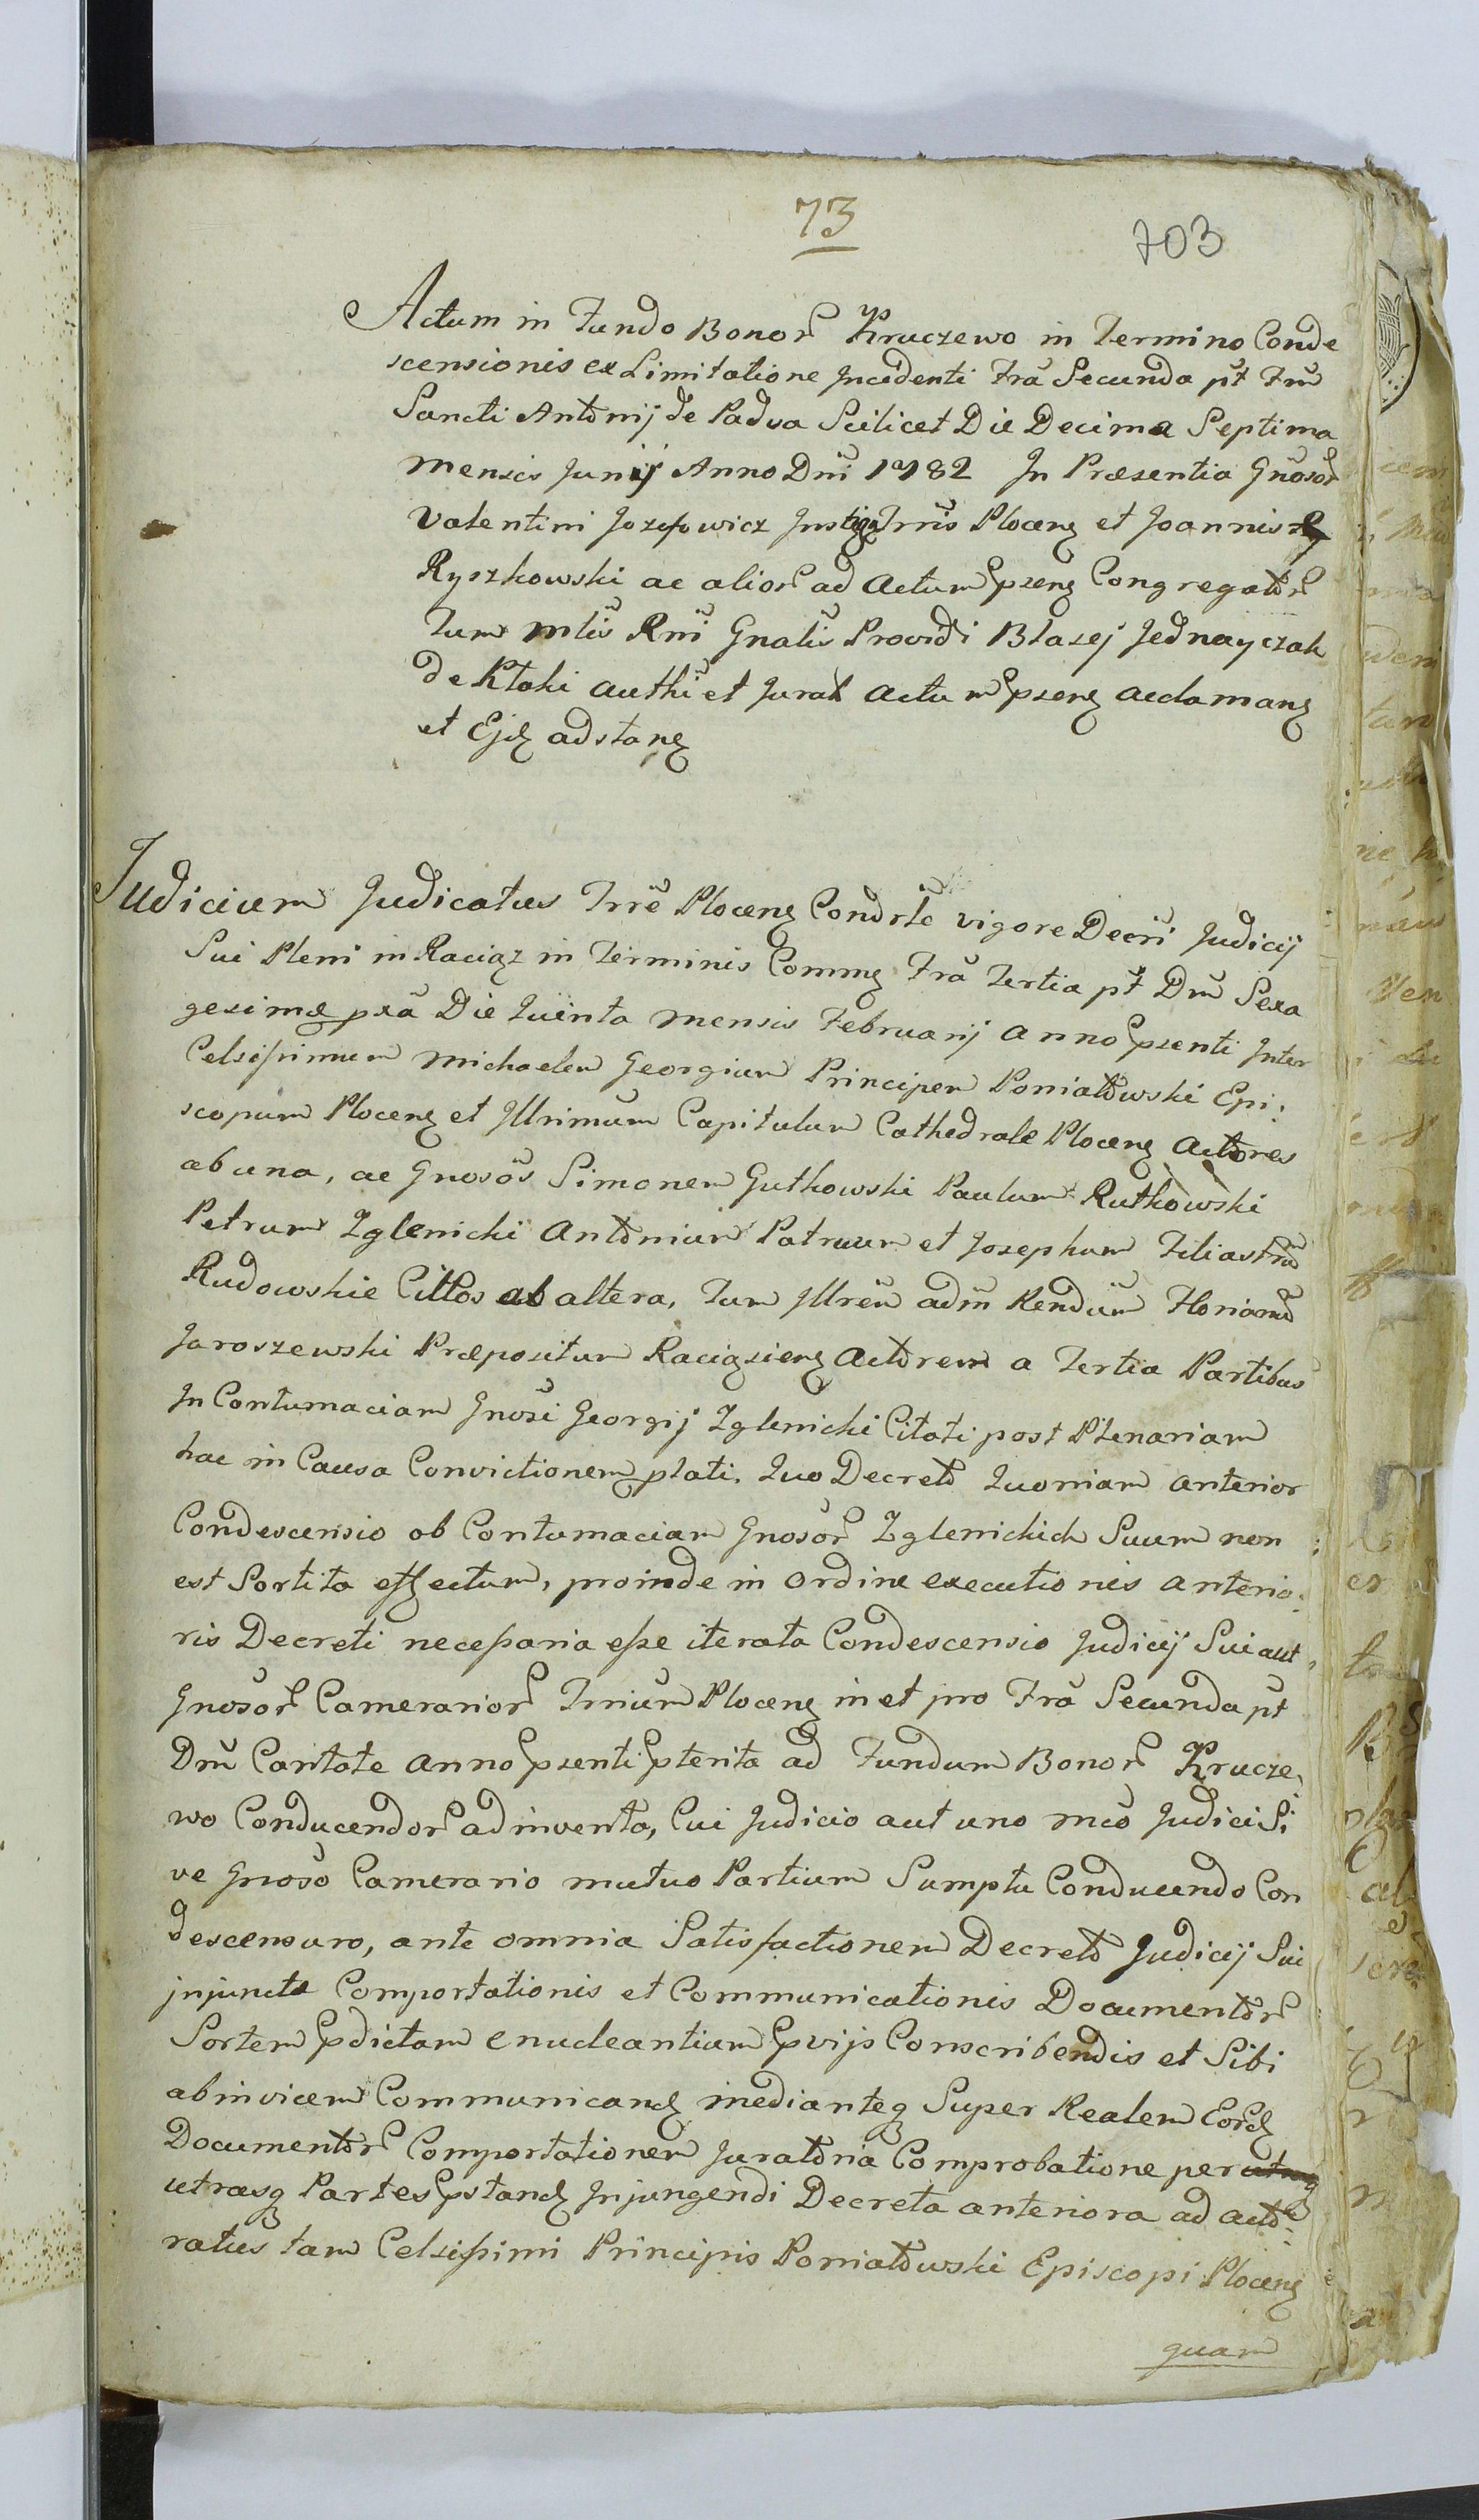 73
703
Actum in Fundo Bonor Kruczewo in Termino Conde
scensionis ex Limitatione Incidenti Fra Secunda pt Fm
Sancti Antonij de Padva Scilicet Die Decima Septima
Mensis Junij Anno Dni 1782 In Præsentia Gnosor
Valentini Jozefowicz Instigatris Plocen et Joannis
Ryszkowski ac alior ad Actum psens Congregator
Tum Mtis Rni Gnalis Providi Blazej Jednayczak
de Ktoki authi et Jurat Actum psens acclamans
et Ejd adstans
Judicium Judicatus Trre Plocen Condrte vigore Decri Judicij
Sui Pleni in Raciąz in Terminis Comms Fra Tertia pt Dm Sexa
gesimæ pxa Die Quinta Mensis Februarij Anno psenti Inter
Celsissimum Michaelem Georgium Principem Poniatowski Epi:
scopum Plocen et Illrimum Capitulum Cathedrale Plocen Actores
ab una, ac Gnosos Simonem Gutkowski Paulum Rutkowski
Petrum Zglenicki Antonium Patruum et Josephum Filiastrum
Rudowskie Cittos ab altera, Tum Illrem adm Rendum Florianum
Jaroszewski Præpositum Raciąziens Actorem a Tertia Partibus
In Contumaciam Gnosi Georgij Zglenicki Citati post Plenariam
hac in Causa Convictionem plati. Quo Decreto Quoniam anterior
Condescensio ob Contumaciam Gnosor Zglenickich Suum non
est Sortita effectum, proinde in ordine executionis anterio:
ris Decreti necessaria esse iterata Condescensio Judicij Sui aut
Gnosor Camerarior Trrium Plocen in et pro Fra Secunda pt
Dm Cantate Anno psenti pterita ad Fundum Bonor Krucze,
wo Conducendor adinventa, Cui Judicio aut uno Mco Judici Si
ve Gnoso Camerario mutuo Partium Sumptu Conducendo Con
descensuro, ante omnia Satisfactionem Decreto Judicij Sui
injunctæ Comportationis et Communicationis Documentor
Sortem pdictam enucleantium pvijs Conscribendis et Sibi
abinvicem Communicand medianteq Super Realem Eord
Documentor Comportationem Juratoria Comprobatione per
utrasq Partes pstand Injungendi Decreta anteriora ad acto:
ratus tam Celsissimi Principis Poniatowski Episcopi Plocen
quam